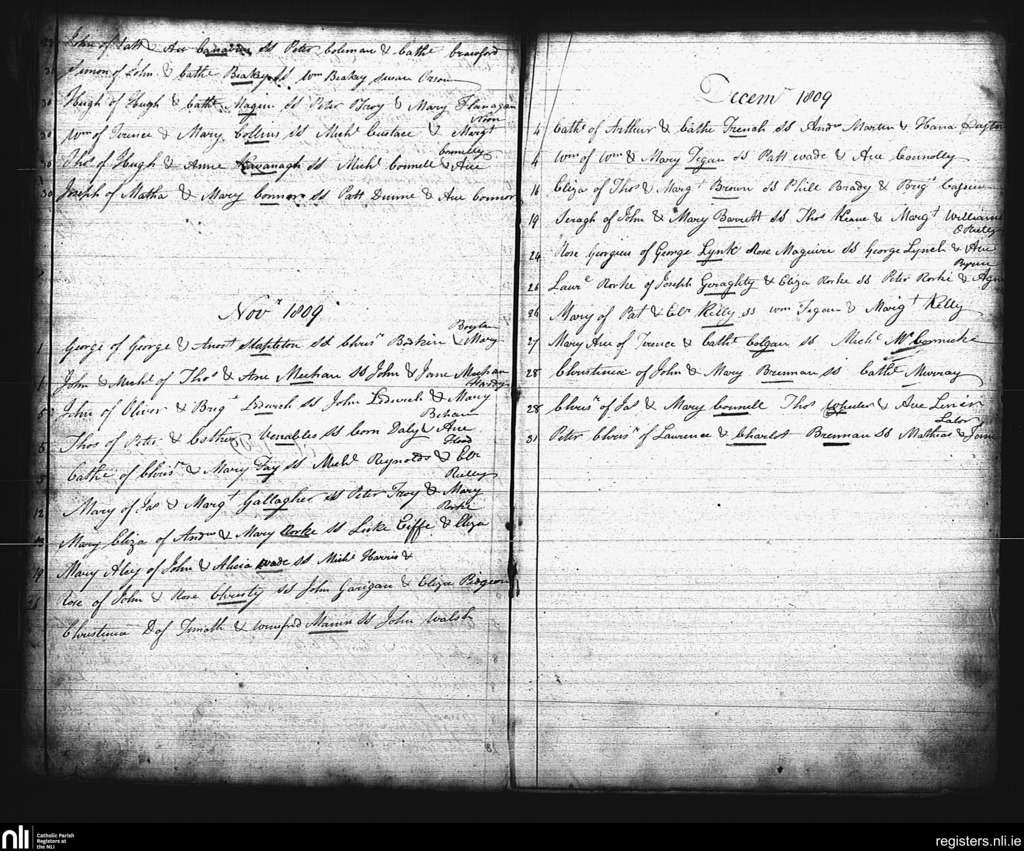 John of Patt & Ann ss Peter Coleman & Cathe Crawford
Simon of John & Cathe Beakey ss Wm Beakey
Hugh of Hugh & Cathe Magen ss Peter Troy & Mary Flanagan
30 Wm of Terence & Mary Collins ss Michl Eustace & Margt
30 Thos of Hugh & Anne Kavanagh ss Michl Connell & Ane Connelly
30 Joseph of Matha & Mary Connor ss Patt Dunne & Ane Connor
Novr 1809
1 George of George & Stapleton ss Chrisr & Mary Boylan
1 John & Michl of Thos & Ane Meehan ss John & Jane Meehan
5 John of Oliver & Brigt Ledwich ss John Ledwich & Mary Hardy
5 Thos of Peter & Esther Venables ss Corn Daly & Ane Behan
5 Cathe of Chrisr & Mary Fay ss Michl Reynolds & Elr Flood
12 Mary of Jas & Margt Gallagher ss Peter Troy & Mary Reilly
Mary Eliza of Andw & Mary Rorke ss Luke Eiffe & Eliza Rorke
19 Mary Aley of John & Alicia Wade ss Michl Harris &
Rose of John & Rose Christy ss John Garigan & Eliza Pidgeon
Christina D of Timoth & Winefred Mannn ss John Walsh
Decemr 1809
4 Cathe of Arthur & Cathe French ss Andw Martin & Hana Dayton
4 Wm of Wm & Mary Tegan ss Patt Wade & Ane Connolly
16 Eliza of Thos & Margt Brown ss Phill Brady & Brigt
19 Seragh of John & Mary Barrett ss Thos Keane & Margt Williams
24 Rose of George Lynk Rose Maguire ss George Lynch & Ane O Reilly
26 Laure Rorke of Joseph Geraghty & Eliza Rorke ss Peter Rorke & Byrne
26 Mary of Pat & Elr Kelly ss Wm Tegan & Margt Kelly
27 Mary Ane of Terence & Cathe Colgan ss Michl McCormick
28 Christinia of John & Mary Brennan ss Cathe Murray
28 Chrisr of Jas & Mary Connell Thos Wheeler & Ane
31 Peter Chrisr of Laurence & Charlot Brennan ss Mathias & Jane Lalor
nli
Catholic Parish
Registers at
the NLI
registers.nli.ie